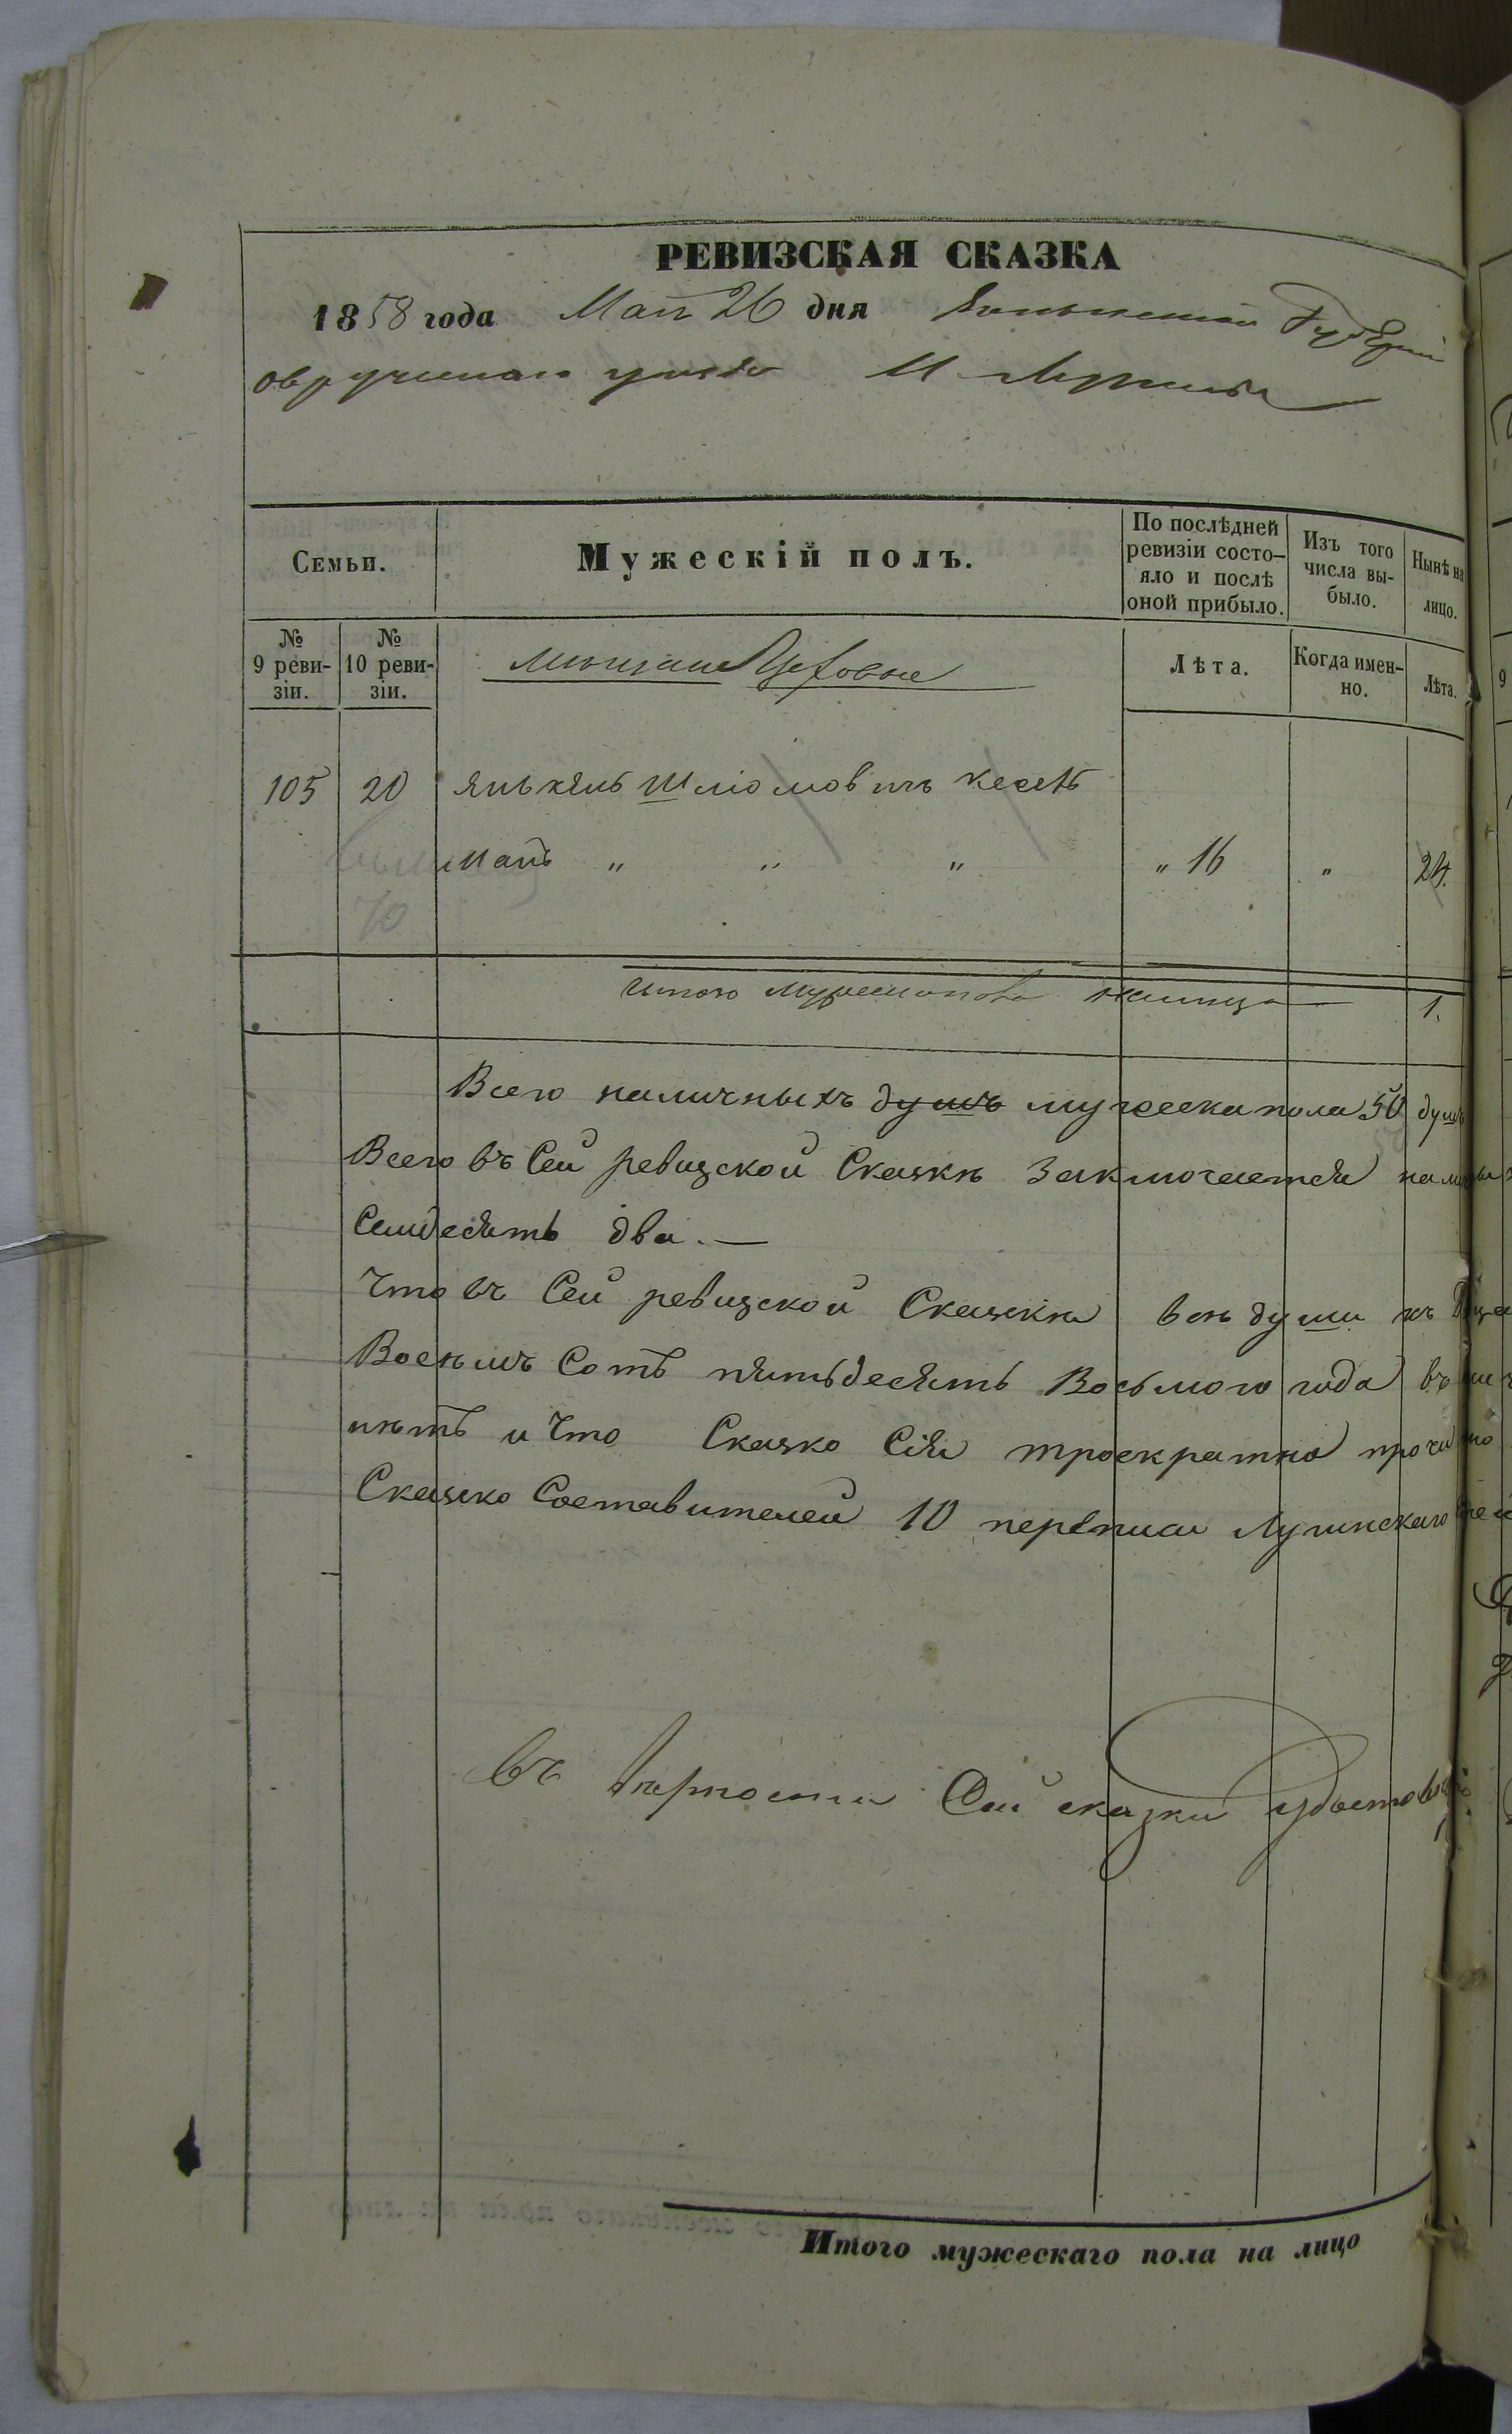 РЕВИЗСКАЯ СКАЗКА
1858 года Мая 26 дня Волынской Губернiи
Овручскаго уѣзда М. Лугины
Семьи.
Мужескiй полъ.
По послѣдней ревизiи состо-яло и послѣ оной прибыло.
Изъ того числа вы-было.
Нынѣ на лицо.
№ 9 реви-зiи.
№ 10 реви-зiи.
Мѣщане Цеховые
Лѣта.
Когда имен-но.
Лѣта.
105 20 Янькель Шлiомовичъ
" " " " 16 " 24.
Итого мужеска пола налицо 1.
Всего наличныхъ душъ мужеска пола 50 душъ
Всего въ Сей ревизской Сказкѣ Заключается
Семдесятъ два. —
Что въ Сей ревизской Сказкѣ всѣ души къ
Восѣмъ Сотъ пятьдесятъ Восьмого года въ
нѣтъ и Что Сказка Сiя троекратно
Сказко Составителей 10 переписи Лугинскаго
Въ вѣрности Сей сказки
Итого мужескаго пола на лицо